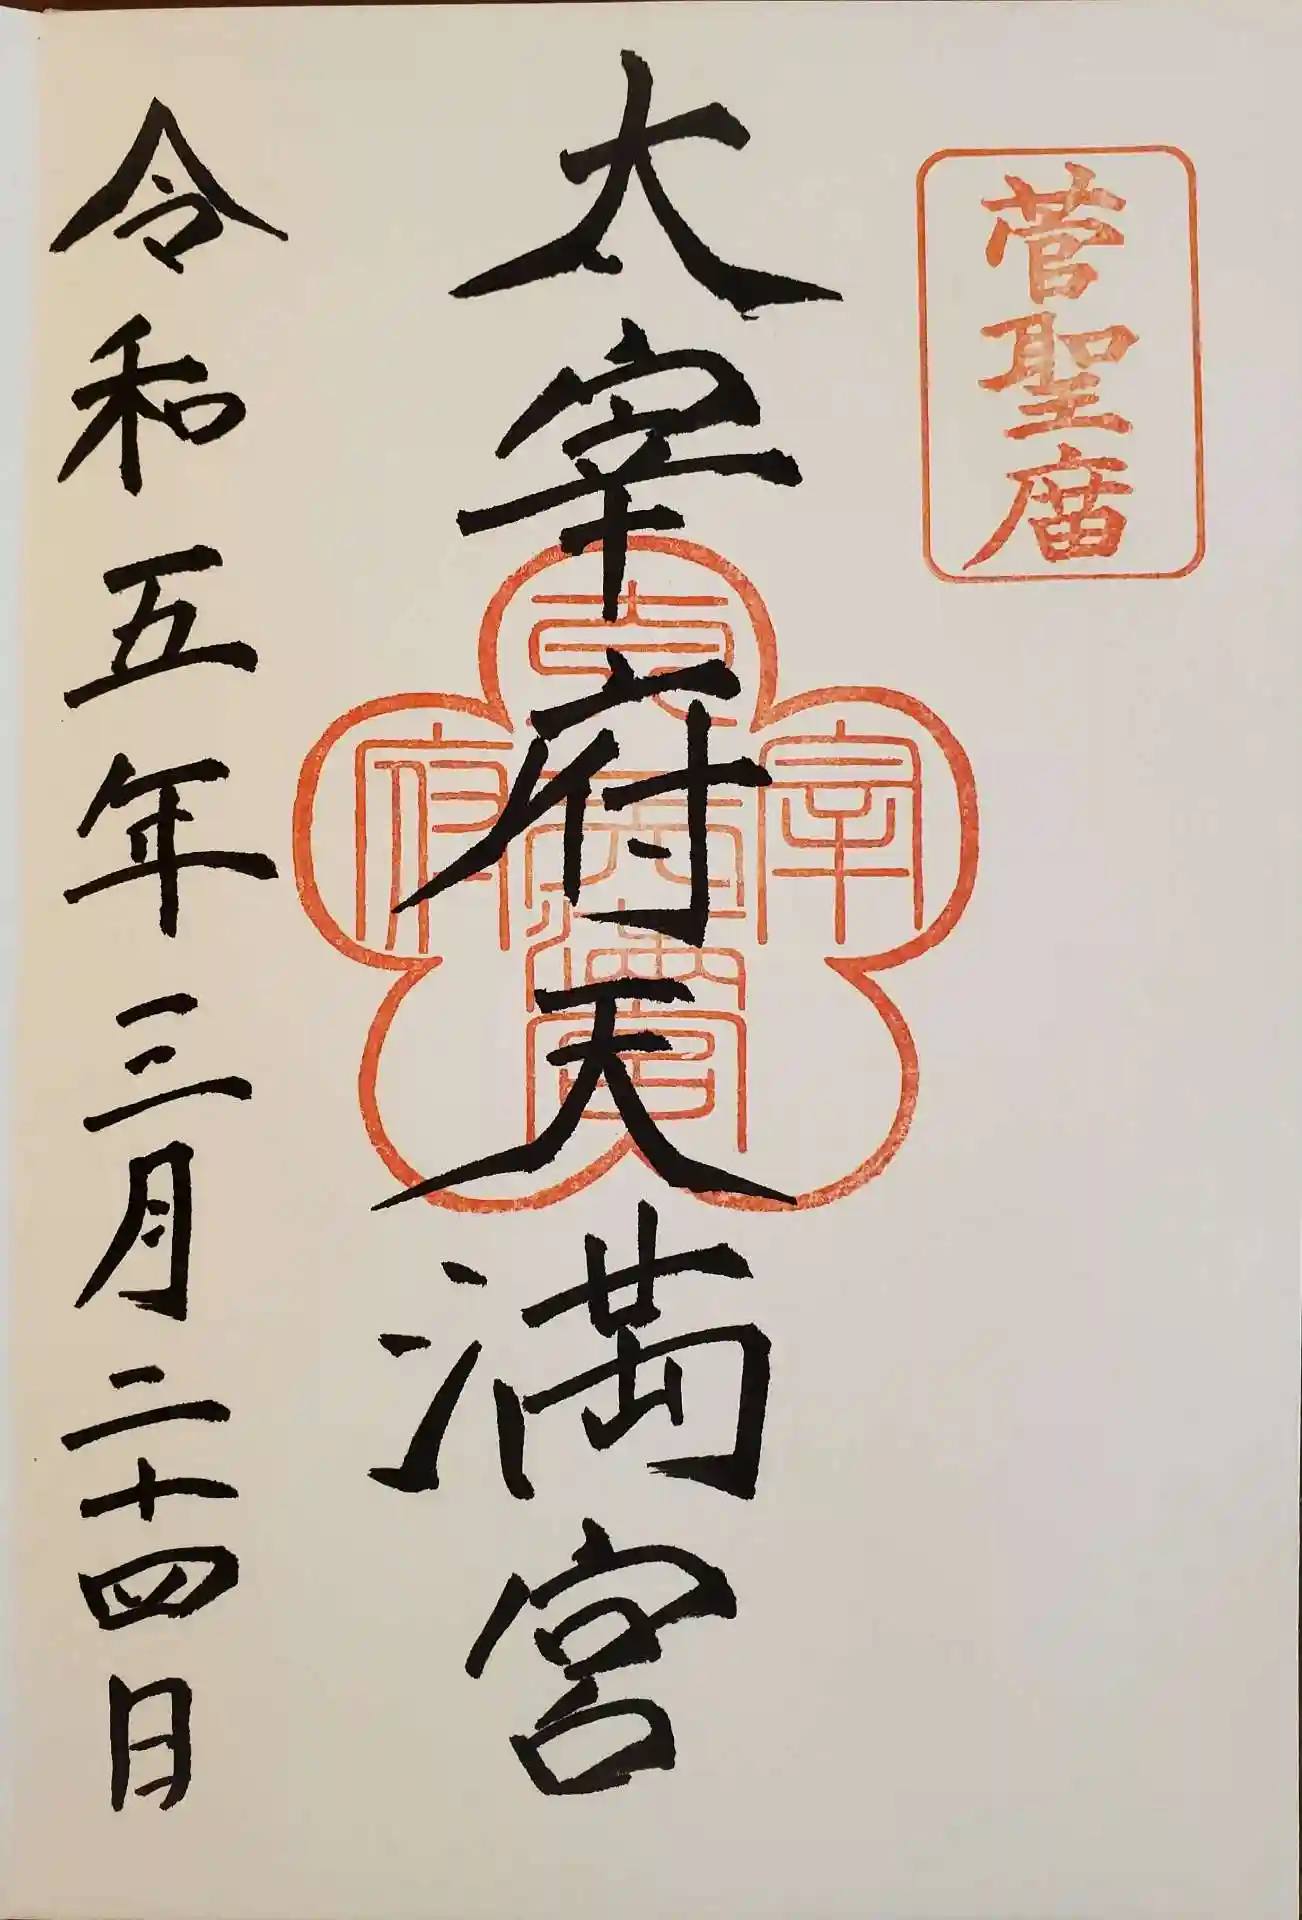 菅聖庿
太宰府天満宮
太宰府天満宮
令和五年三月二十四日